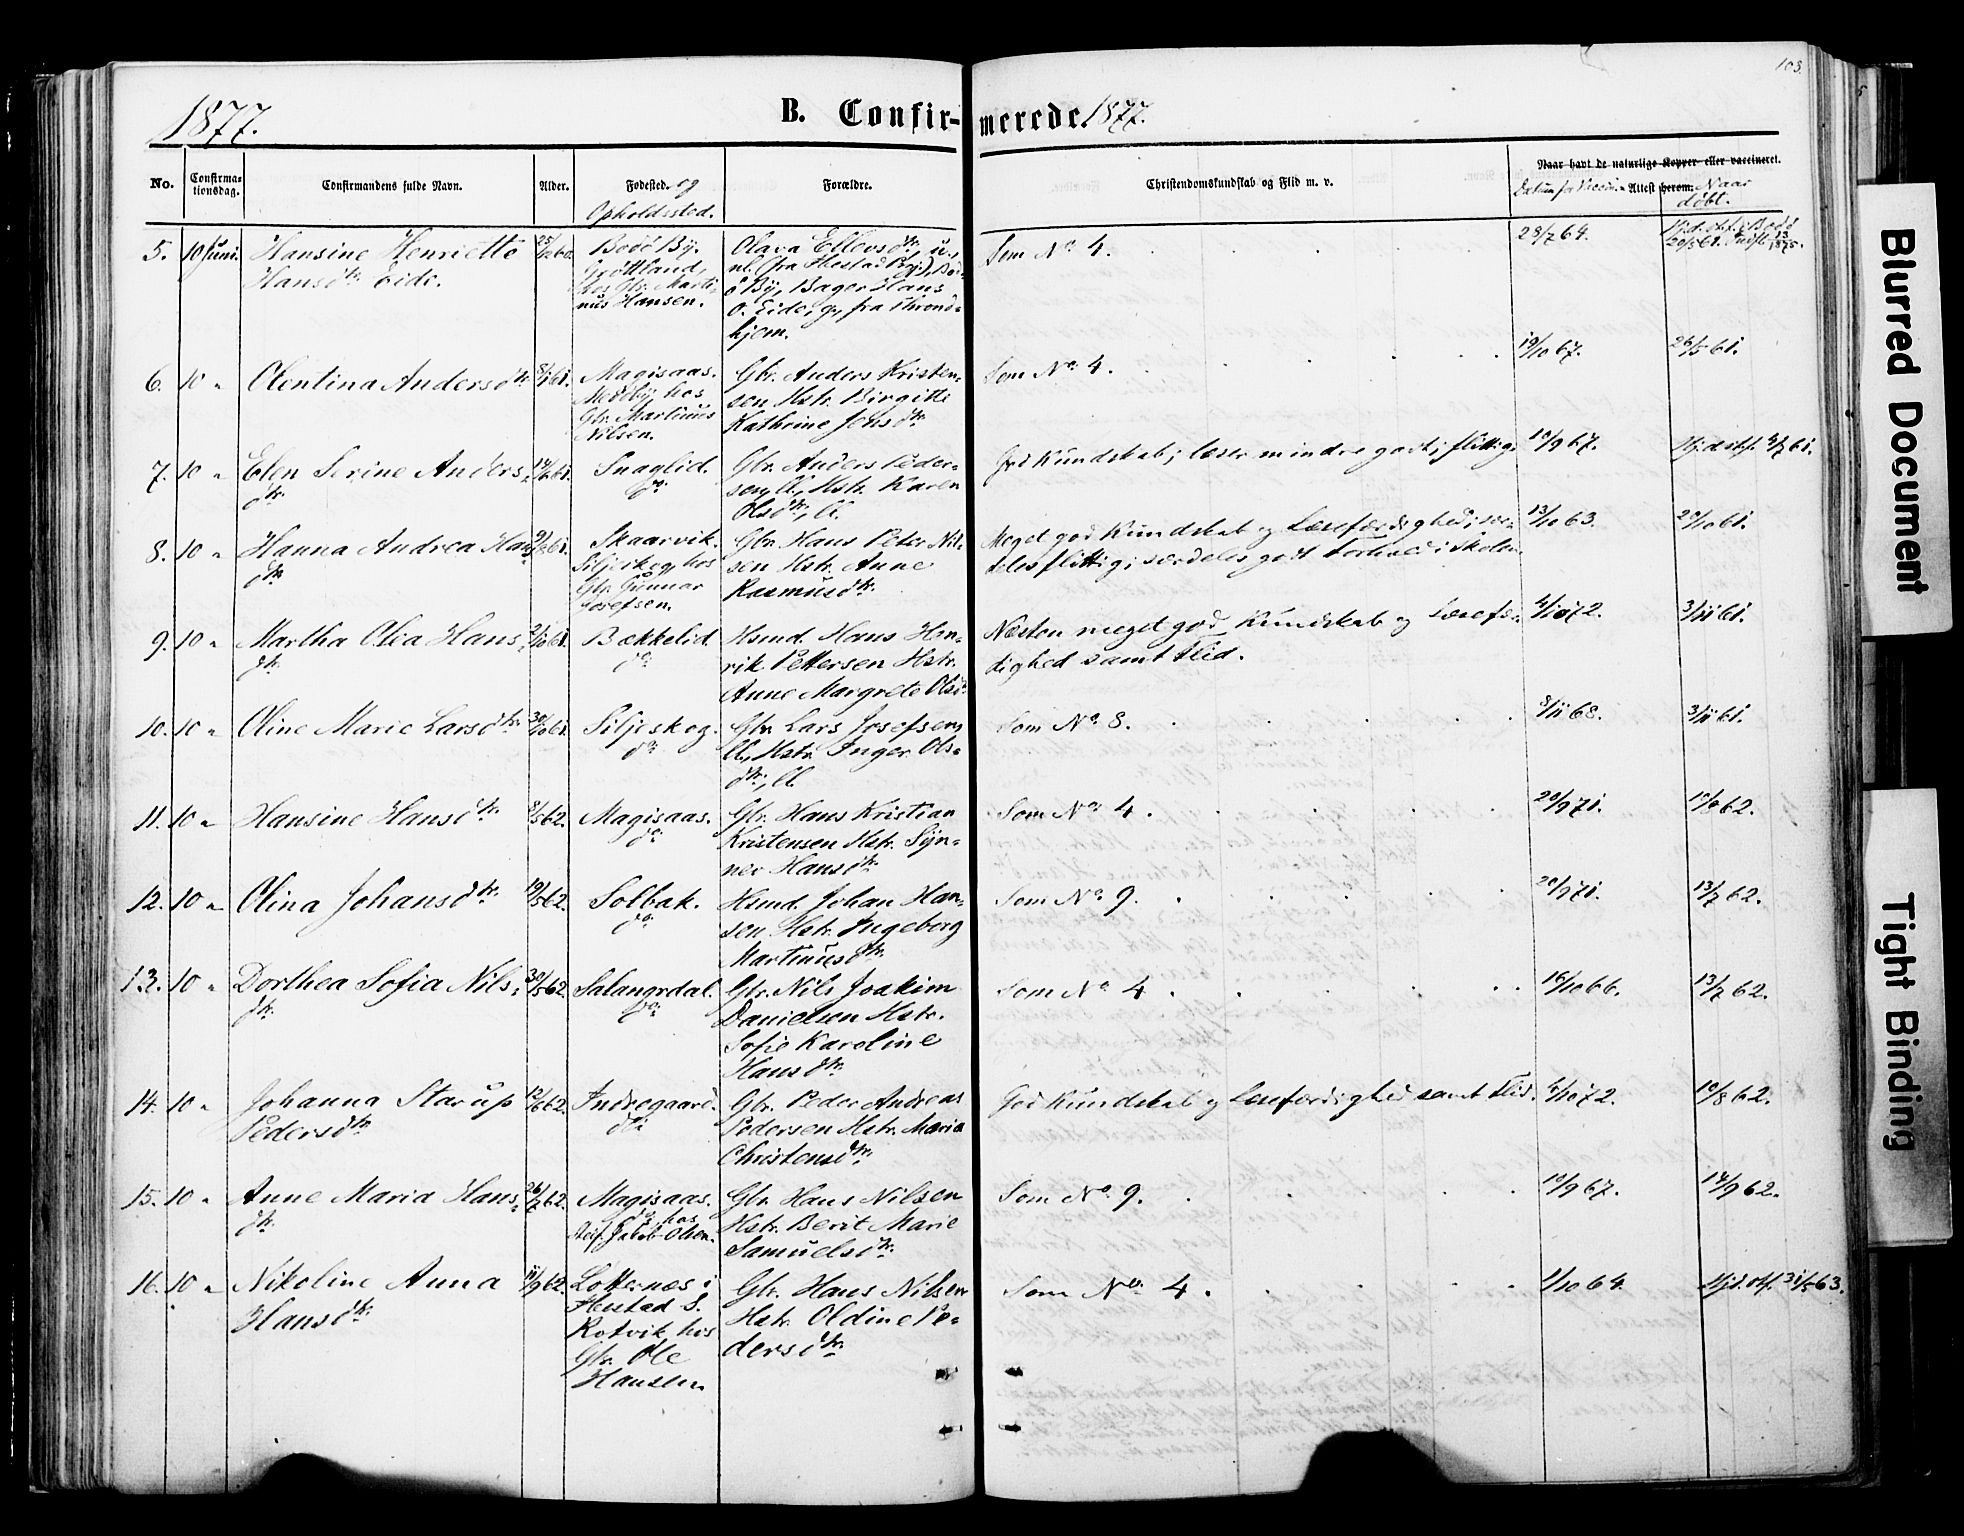 103.
1877.
B. Confirmerede 1877.
No.
Confirmationsdag.
Confirmandens fulde Navn.
Alder.
Fodested. og
Opholdssted.
Forældre.
Christendomskundskab og Flid m. v.
Naar havt de naturlige Kopper eller vaccineret.
Datum for Attest herom. Naar
døbt.
5. 10 Juni. Hansine Henriette
Hansdtr. Eide.
Bodö By.
Martinus Hansen.
Olava Ellevsdtr., u.,
ö By, Bager Hans
O. Eide, g., fra Throndhjem.
Som No. 4.
28/7 64.
6. 10 " Olentina Andersdtr. 8/1 61.
Magisaas.
Medby, hos
Gbr. Martinus
Nilsen.
Gbr. Anders Kristensen
Hstr. Birgitte
Kathrine Jensdtr.
Som No. 4.
19/10 67.
26/5 61.
7. 10 " Elen Serine Andersdtr.
Snaglid.
do.
Gbr. Anders Pedersen, ll., Hstr. Karen
Olsdtr., ll.
God Kundskab; læser mindre godt; flittig.
10/9 67.
Hjdøbt.
8. 10 " Hanna Andrea Hansdtr.
Skaarvik.
Siljeskog, hos
Gbr. Gunnar
Josefsen.
Gbr. Hans Peter Nilsen
Hstr. Anne
Rasmusdtr.
Meget god Kundskab og Læsefærdighed; særdeles
flittig; særdeles godt Forhold i Skolen.
13/10 63.
20/10 61.
9. 10 " Martha Olia Hansdtr.
Bækkelid.
do.
Hsmd. Hans Henrik
Pettersen Hstr.
Anne Margrete Olsdtr.
Næsten meget god Kundskab og Læsefærdighed
samt Flid.
4/10 72.
3/11 61.
10. 10 " Oline Marie Larsdtr. 30/10 61.
Siljeskog.
do.
Gbr. Lars Josefsen,
ll., Hstr. Inger Olsdtr., ll.
Som No. 8.
8/11 68.
3/11 61.
11. 10 " Hansine Hansdtr. 8/5 62.
Magisaas.
do.
Gbr. Hans Kristian
Kristensen Hstr. Synner
Hansdtr.
Som No. 4.
20/9 71.
10/8 62.
12. 10 " Olina Johansdtr. 19/5 62.
Solbak.
do.
Hsmd. Johan Hansen
Hstr. Ingeborg
Martinusdtr.
Som No. 9.
20/9 71.
13/7 62.
13. 10 " Dorthea Sofia Nilsdtr. 30/5 62.
Salangrdal.
do.
Gbr. Nils Joakim
Danielsen Hstr.
Sofie Karoline
Hansdtr.
Som No. 4.
16/10 66.
13/7 62.
14. 10 " Johanna Starup
Pedersdtr. 12/6 62.
Indregaard.
do.
Gbr. Peder Andreas
Pedersen Hstr. Maria
Christensdtr.
God Kundskab og Læsefærdighed samt Flid.
4/10 72.
10/8 62.
15. 10 " Anne Maria Hansdtr. 26/7 62.
Magisaas.
do. hos
Jakob Olsen.
Gbr. Hans Nilsen
Hstr. Berit Marie
Samuelsdtr.
Som No. 9.
10/9 67.
14/9 62.
16. 10 " Nikoline Anna
Hansdtr. 11/9 62.
Lotternæs i
Ibestad S.
Rotvik, hos
Gbr. Ole
Hansen.
Gbr. Hans Nilsen
Hstr. Oldine Pedersdtr.
Som No. 4.
1/10 64.
Hjd. 31/5 63.
Blurred Document
Tight Binding